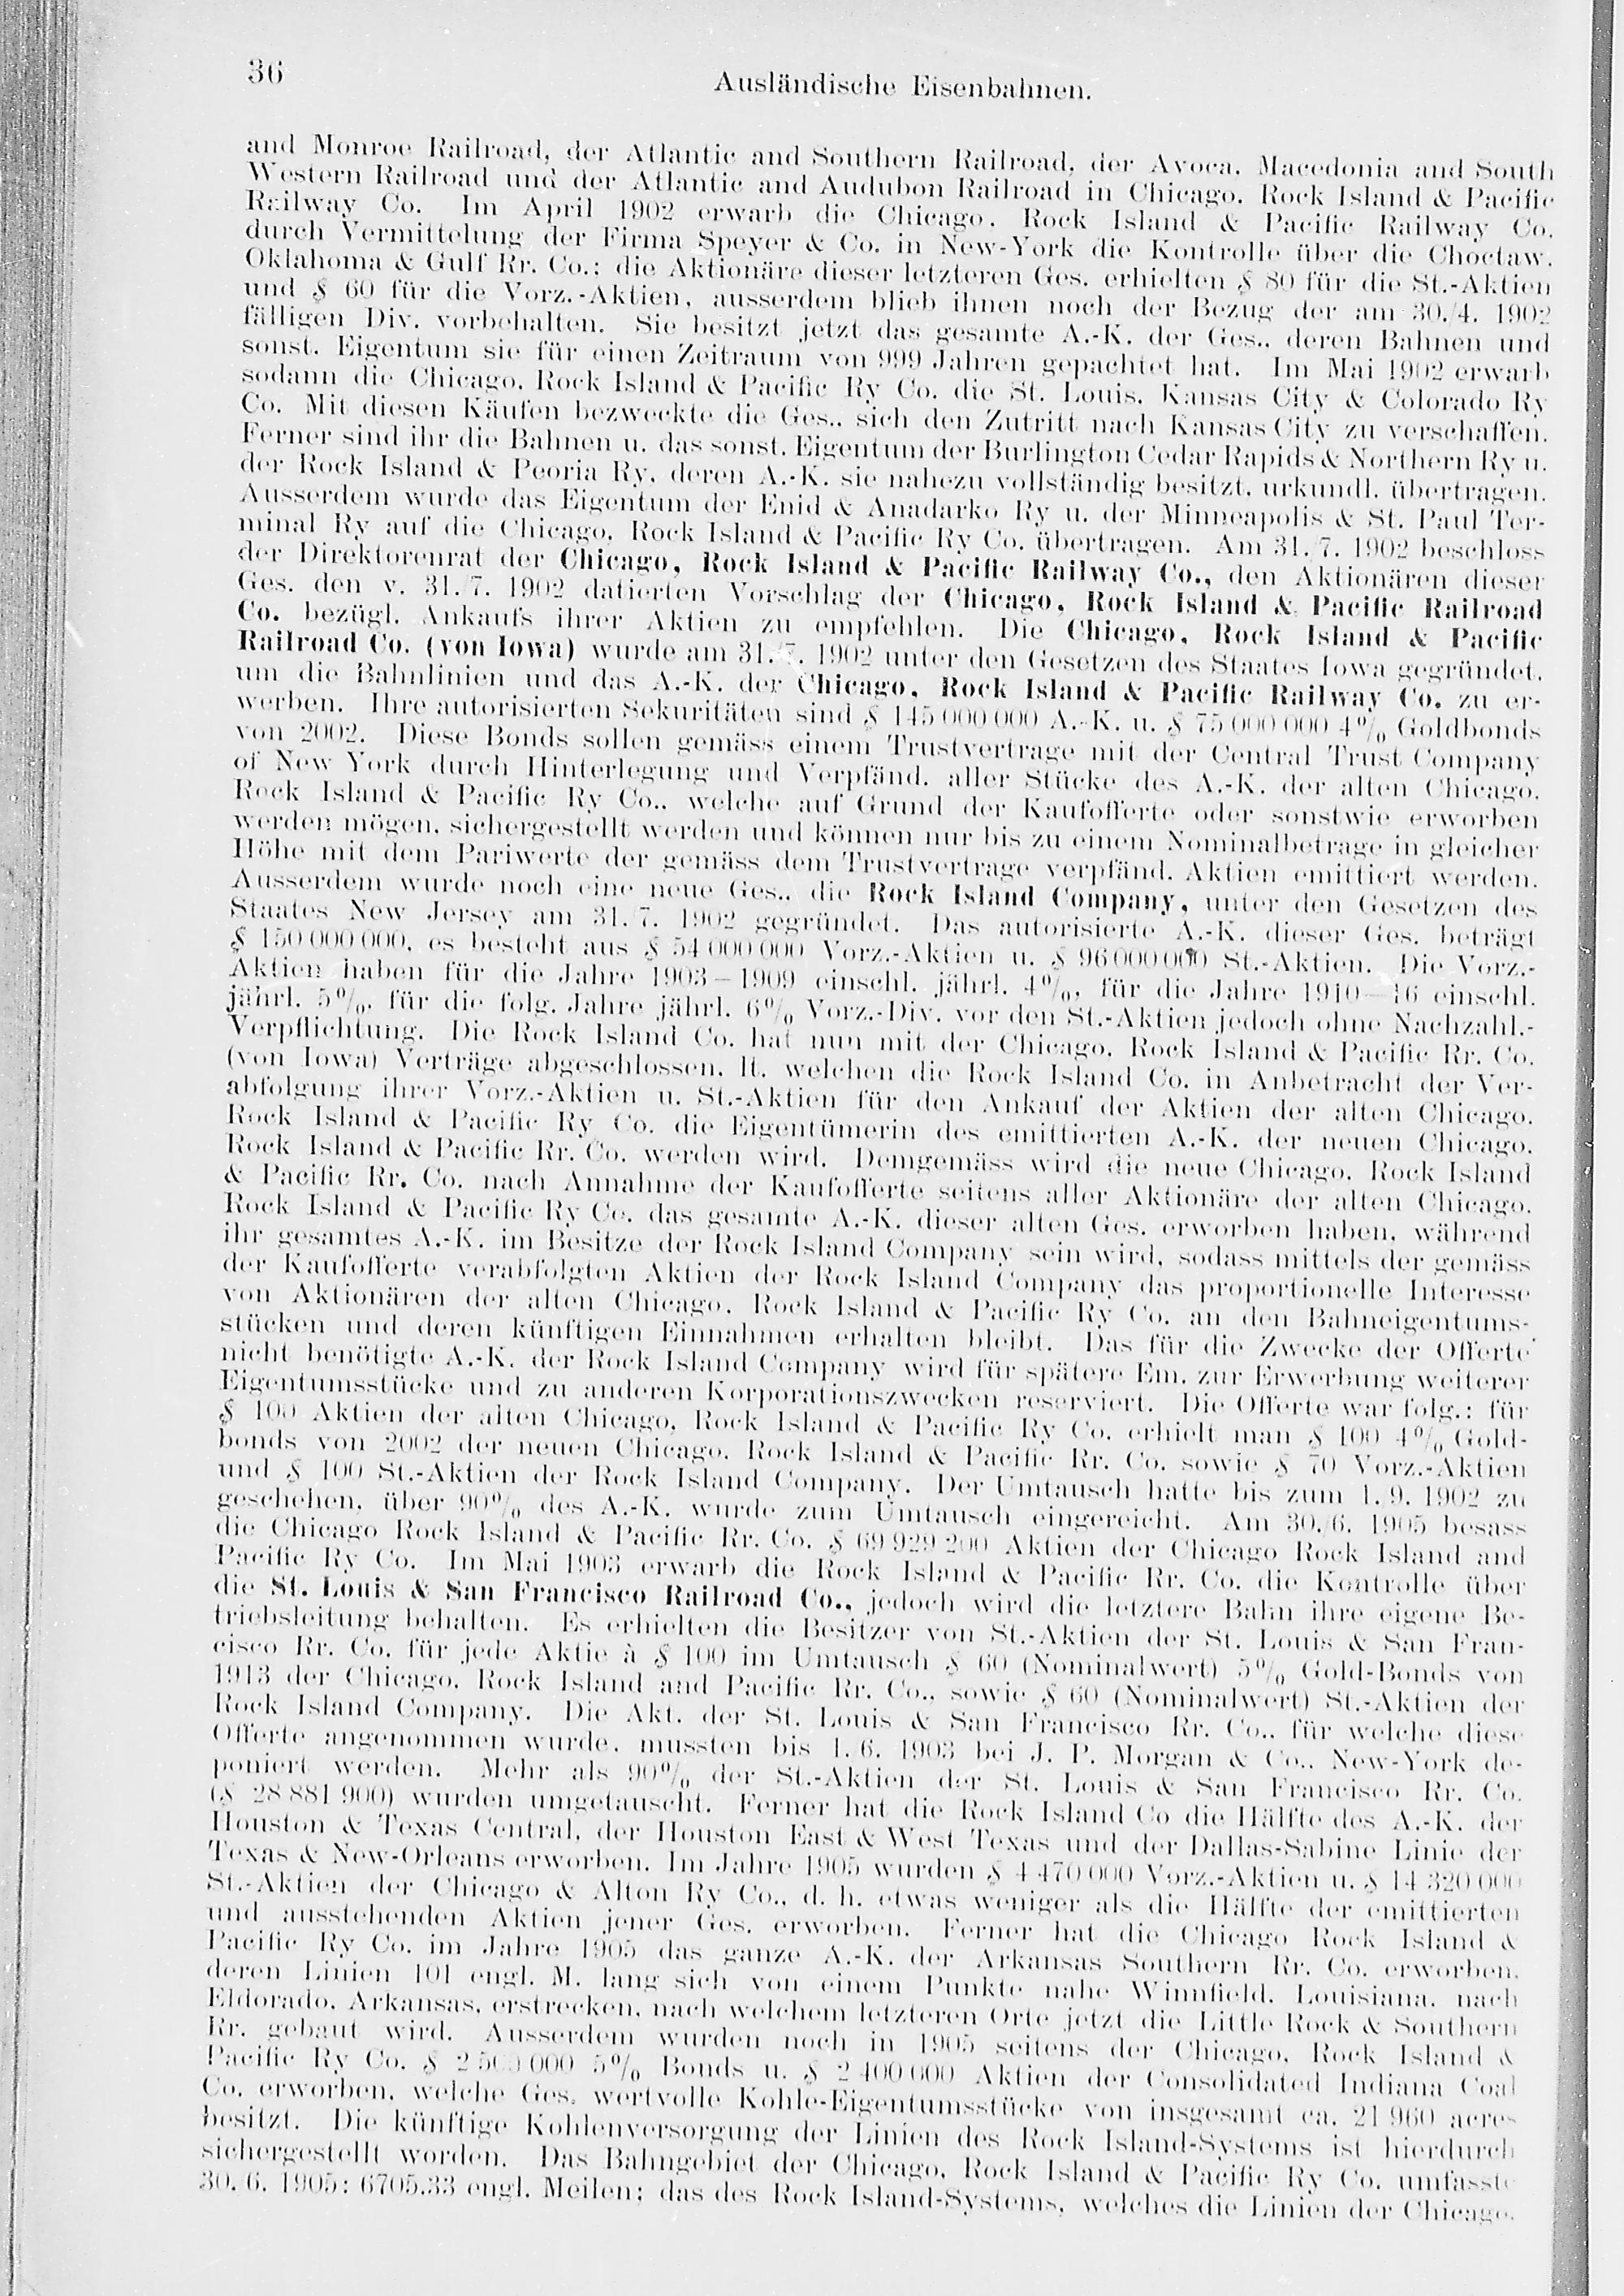 36
Ausländische Eisenbahnen.
and Monroe Railroad, der Atlantic and Southern Railroad, der Avoca, Macedonia and South
Western Railroad und der Atlantic and Audubon Railroad in Chicago, Rock Island & Pacific
Railway Co. Im April 1902 erwarb die Chicago, Rock Island & Pacific Railway Co.
durch Vermittelung der Firma Speyer & Co. in New-York die Kontrolle über die Choctaw,
Oklahoma & Gulf Rr. Co.; die Aktionäre dieser letzteren Ges. erhielten $ 80 für die St.-Aktien
und $ 60 für die Vorz.-Aktien, ausserdem blieb ihnen noch der Bezug der am 30./4. 1902
fälligen Div. vorbehalten. Sie besitzt jetzt das gesamte A.-K. der Ges., deren Bahnen und
sonst. Eigentum sie für einen Zeitraum von 999 Jahren gepachtet hat. Im Mai 1902 erwarb
sodann die Chicago, Rock Island & Pacific Ry Co. die St. Louis, Kansas City & Colorado Ry
Co. Mit diesen Käufen bezweckte die Ges., sich den Zutritt nach Kansas City zu verschaffen.
Ferner sind ihr die Bahnen u. das sonst. Eigentum der Burlington Cedar Rapids & Northern Ry u.
der Rock Island & Peoria Ry, deren A.-K. sie nahezu vollständig besitzt, urkundl. übertragen.
Ausserdem wurde das Eigentum der Enid & Anadarko Ry u. der Minneapolis & St. Paul Ter-
minal Ry auf die Chicago, Rock Island & Pacific Ry Co. übertragen. Am 31./7. 1902 beschloss
der Direktorenrat der Chicago, Rock Island & Pacific Railway Co., den Aktionären dieser
Ges. den v. 31./7. 1902 datierten Vorschlag der Chicago, Rock Island & Pacific Railroad
Co. bezügl. Ankaufs ihrer Aktien zu empfehlen. Die Chicago, Rock Island & Pacific
Railroad Co. (von Iowa) wurde am 31./7. 1902 unter den Gesetzen des Staates Iowa gegründet,
um die Bahnlinien und das A.-K. der Chicago, Rock Island & Pacific Railway Co. zu er-
werben. Ihre autorisierten Sekuritäten sind $ 145 000 000 A.-K. u. $ 75 000 000 4% Goldbonds
von 2002. Diese Bonds sollen gemäss einem Trustvertrage mit der Central Trust Company
of New York durch Hinterlegung und Verpfänd. aller Stücke des A.-K. der alten Chicago,
Rock Island & Pacific Ry Co., welche auf Grund der Kaufofferte oder sonstwie erworben
werden mögen, sichergestellt werden und können nur bis zu einem Nominalbetrage in gleicher
Höhe mit dem Pariwerte der gemäss dem Trustvertrage verpfänd. Aktien emittiert werden.
Ausserdem wurde noch eine neue Ges., die Rock Island Company, unter den Gesetzen des
Staates New Jersey am 31./7. 1902 gegründet. Das autorisierte A.-K. dieser Ges. beträgt
$ 150 000 000, es besteht aus $ 54 000 000 Vorz.-Aktien u. $ 96 000 000 St.-Aktien. Die Vorz.-
Aktien haben für die Jahre 1903–1909 einschl. jährl. 4%, für die Jahre 1910–16 einschl.
jährl. 5%, für die folg. Jahre jährl. 6% Vorz.-Div. vor den St.-Aktien jedoch ohne Nachzahl.-
Verpflichtung. Die Rock Island Co. hat nun mit der Chicago, Rock Island & Pacific Rr. Co.
(von Iowa) Verträge abgeschlossen, lt. welchen die Rock Island Co. in Anbetracht der Ver-
abfolgung ihrer Vorz.-Aktien u. St.-Aktien für den Ankauf der Aktien der alten Chicago,
Rock Island & Pacific Ry Co. die Eigentümerin des emittierten A.-K. der neuen Chicago,
Rock Island & Pacific Rr. Co. werden wird. Demgemäss wird die neue Chicago, Rock Island
& Pacific Rr. Co. nach Annahme der Kaufofferte seitens aller Aktionäre der alten Chicago,
Rock Island & Pacific Ry Co. das gesamte A.-K. dieser alten Ges. erworben haben, während
ihr gesamtes A.-K. im Besitze der Rock Island Company sein wird, sodass mittels der gemäss
der Kaufofferte verabfolgten Aktien der Rock Island Company das proportionelle Interesse
von Aktionären der alten Chicago, Rock Island & Pacific Ry Co. an den Bahneigentums-
stücken und deren künftigen Einnahmen erhalten bleibt. Das für die Zwecke der Offerte
nicht benötigte A.-K. der Rock Island Company wird für spätere Em. zur Erwerbung weiterer
Eigentumsstücke und zu anderen Korporationszwecken reserviert. Die Offerte war folg.: für
$ 100 Aktien der alten Chicago, Rock Island & Pacific Ry Co. erhielt man $ 100 4% Gold-
bonds von 2002 der neuen Chicago, Rock Island & Pacific Rr. Co. sowie $ 70 Vorz.-Aktien
und $ 100 St.-Aktien der Rock Island Company. Der Umtausch hatte bis zum 1./9. 1902 zu
geschehen, über 90% des A.-K. wurde zum Umtausch eingereicht. Am 30./6. 1905 besass
die Chicago Rock Island & Pacific Rr. Co. $ 69 929 200 Aktien der Chicago Rock Island and
Pacific Ry Co. Im Mai 1903 erwarb die Rock Island & Pacific Rr. Co. die Kontrolle über
die St. Louis & San Francisco Railroad Co., jedoch wird die letztere Bahn ihre eigene Be-
triebsleitung behalten. Es erhielten die Besitzer von St.-Aktien der St. Louis & San Fran-
cisco Rr. Co. für jede Aktie à $ 100 im Umtausch $ 60 (Nominalwert) 5% Gold-Bonds von
1913 der Chicago, Rock Island and Pacific Rr. Co., sowie $ 60 (Nominalwert) St.-Aktien der
Rock Island Company. Die Akt. der St. Louis & San Francisco Rr. Co., für welche diese
Offerte angenommen wurde, mussten bis 1./6. 1903 bei J. P. Morgan & Co., New-York de-
poniert werden. Mehr als 90% der St.-Aktien der St. Louis & San Francisco Rr. Co.
($ 28 881 900) wurden umgetauscht. Ferner hat die Rock Island Co die Hälfte des A.-K. der
Houston & Texas Central, der Houston East & West Texas und der Dallas-Sabine Linie der
Texas & New-Orleans erworben. Im Jahre 1905 wurden $ 4 470 000 Vorz.-Aktien u. $ 14 320 000
St.-Aktien der Chicago & Alton Ry Co., d. h. etwas weniger als die Hälfte der emittierten
und ausstehenden Aktien jener Ges. erworben. Ferner hat die Chicago Rock Island &
Pacific Ry Co. im Jahre 1905 das ganze A.-K. der Arkansas Southern Rr. Co. erworben,
deren Linien 101 engl. M. lang sich von einem Punkte nahe Winnfield, Louisiana, nach
Eldorado, Arkansas, erstrecken, nach welchem letzteren Orte jetzt die Little Rock & Southern
Rr. gebaut wird. Ausserdem wurden noch in 1905 seitens der Chicago, Rock Island &
Pacific Ry Co. $ 2 500 000 5% Bonds u. $ 2 400 000 Aktien der Consolidated Indiana Coal
Co. erworben, welche Ges. wertvolle Kohle-Eigentumsstücke von insgesamt ca. 21 960 acres
besitzt. Die künftige Kohlenversorgung der Linien des Rock Island-Systems ist hierdurch
sichergestellt worden. Das Bahngebiet der Chicago, Rock Island & Pacific Ry Co. umfasste
30./6. 1905: 6705.33 engl. Meilen; das des Rock Island-Systems, welches die Linien der Chicago,